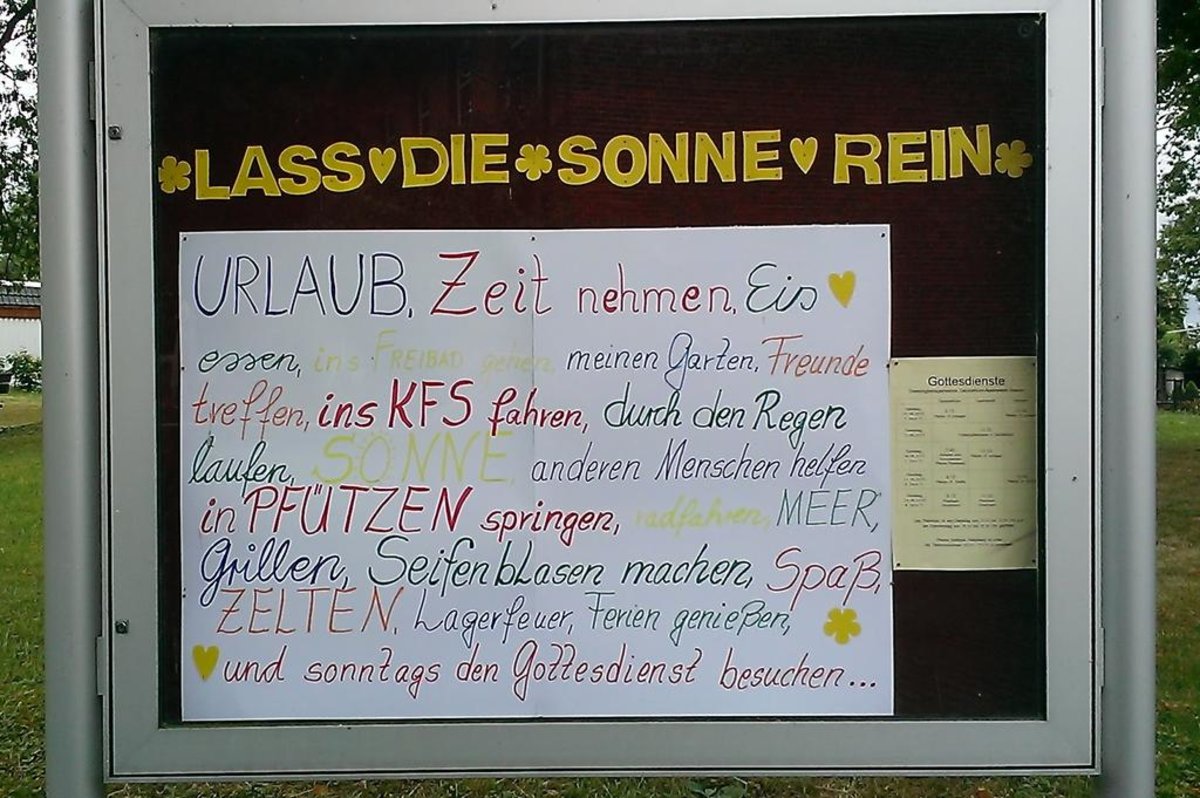 LASS DIE SONNE REIN
URLAUB, Zeit nehmen, Eis
essen, ins FREIBAD gehen, meinen Garten, Freunde
treffen, ins KFS fahren, durch den Regen
laufen, SONNE, anderen Menschen helfen
in PFÜTZEN springen, radfahren, MEER,
Grillen, Seifenblasen machen, Spaß,
ZELTEN, Lagerfeuer, Ferien genießen,
und sonntags den Gottesdienst besuchen...
Gottesdienste